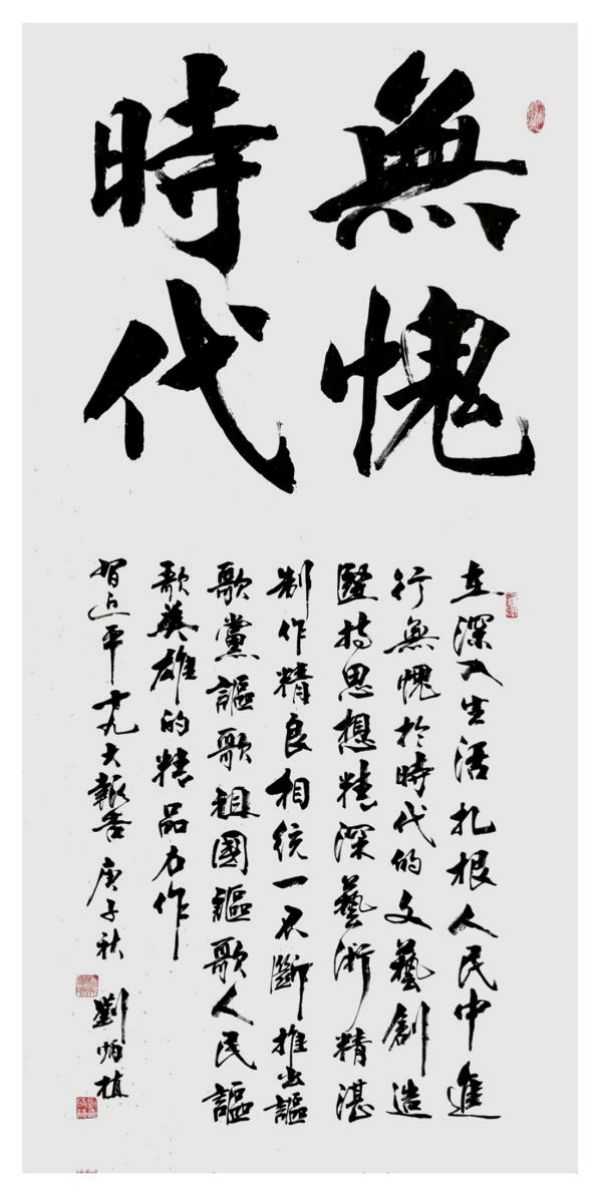 無愧
時代
在深入生活扎根人民中進
行無愧於時代的文藝創造
堅持思想精深藝術精湛
制作精良相統一不斷推出謳
歌黨謳歌祖國謳歌人民謳
歌英雄的精品力作
習近平十九大報告 庚子秋 劉植